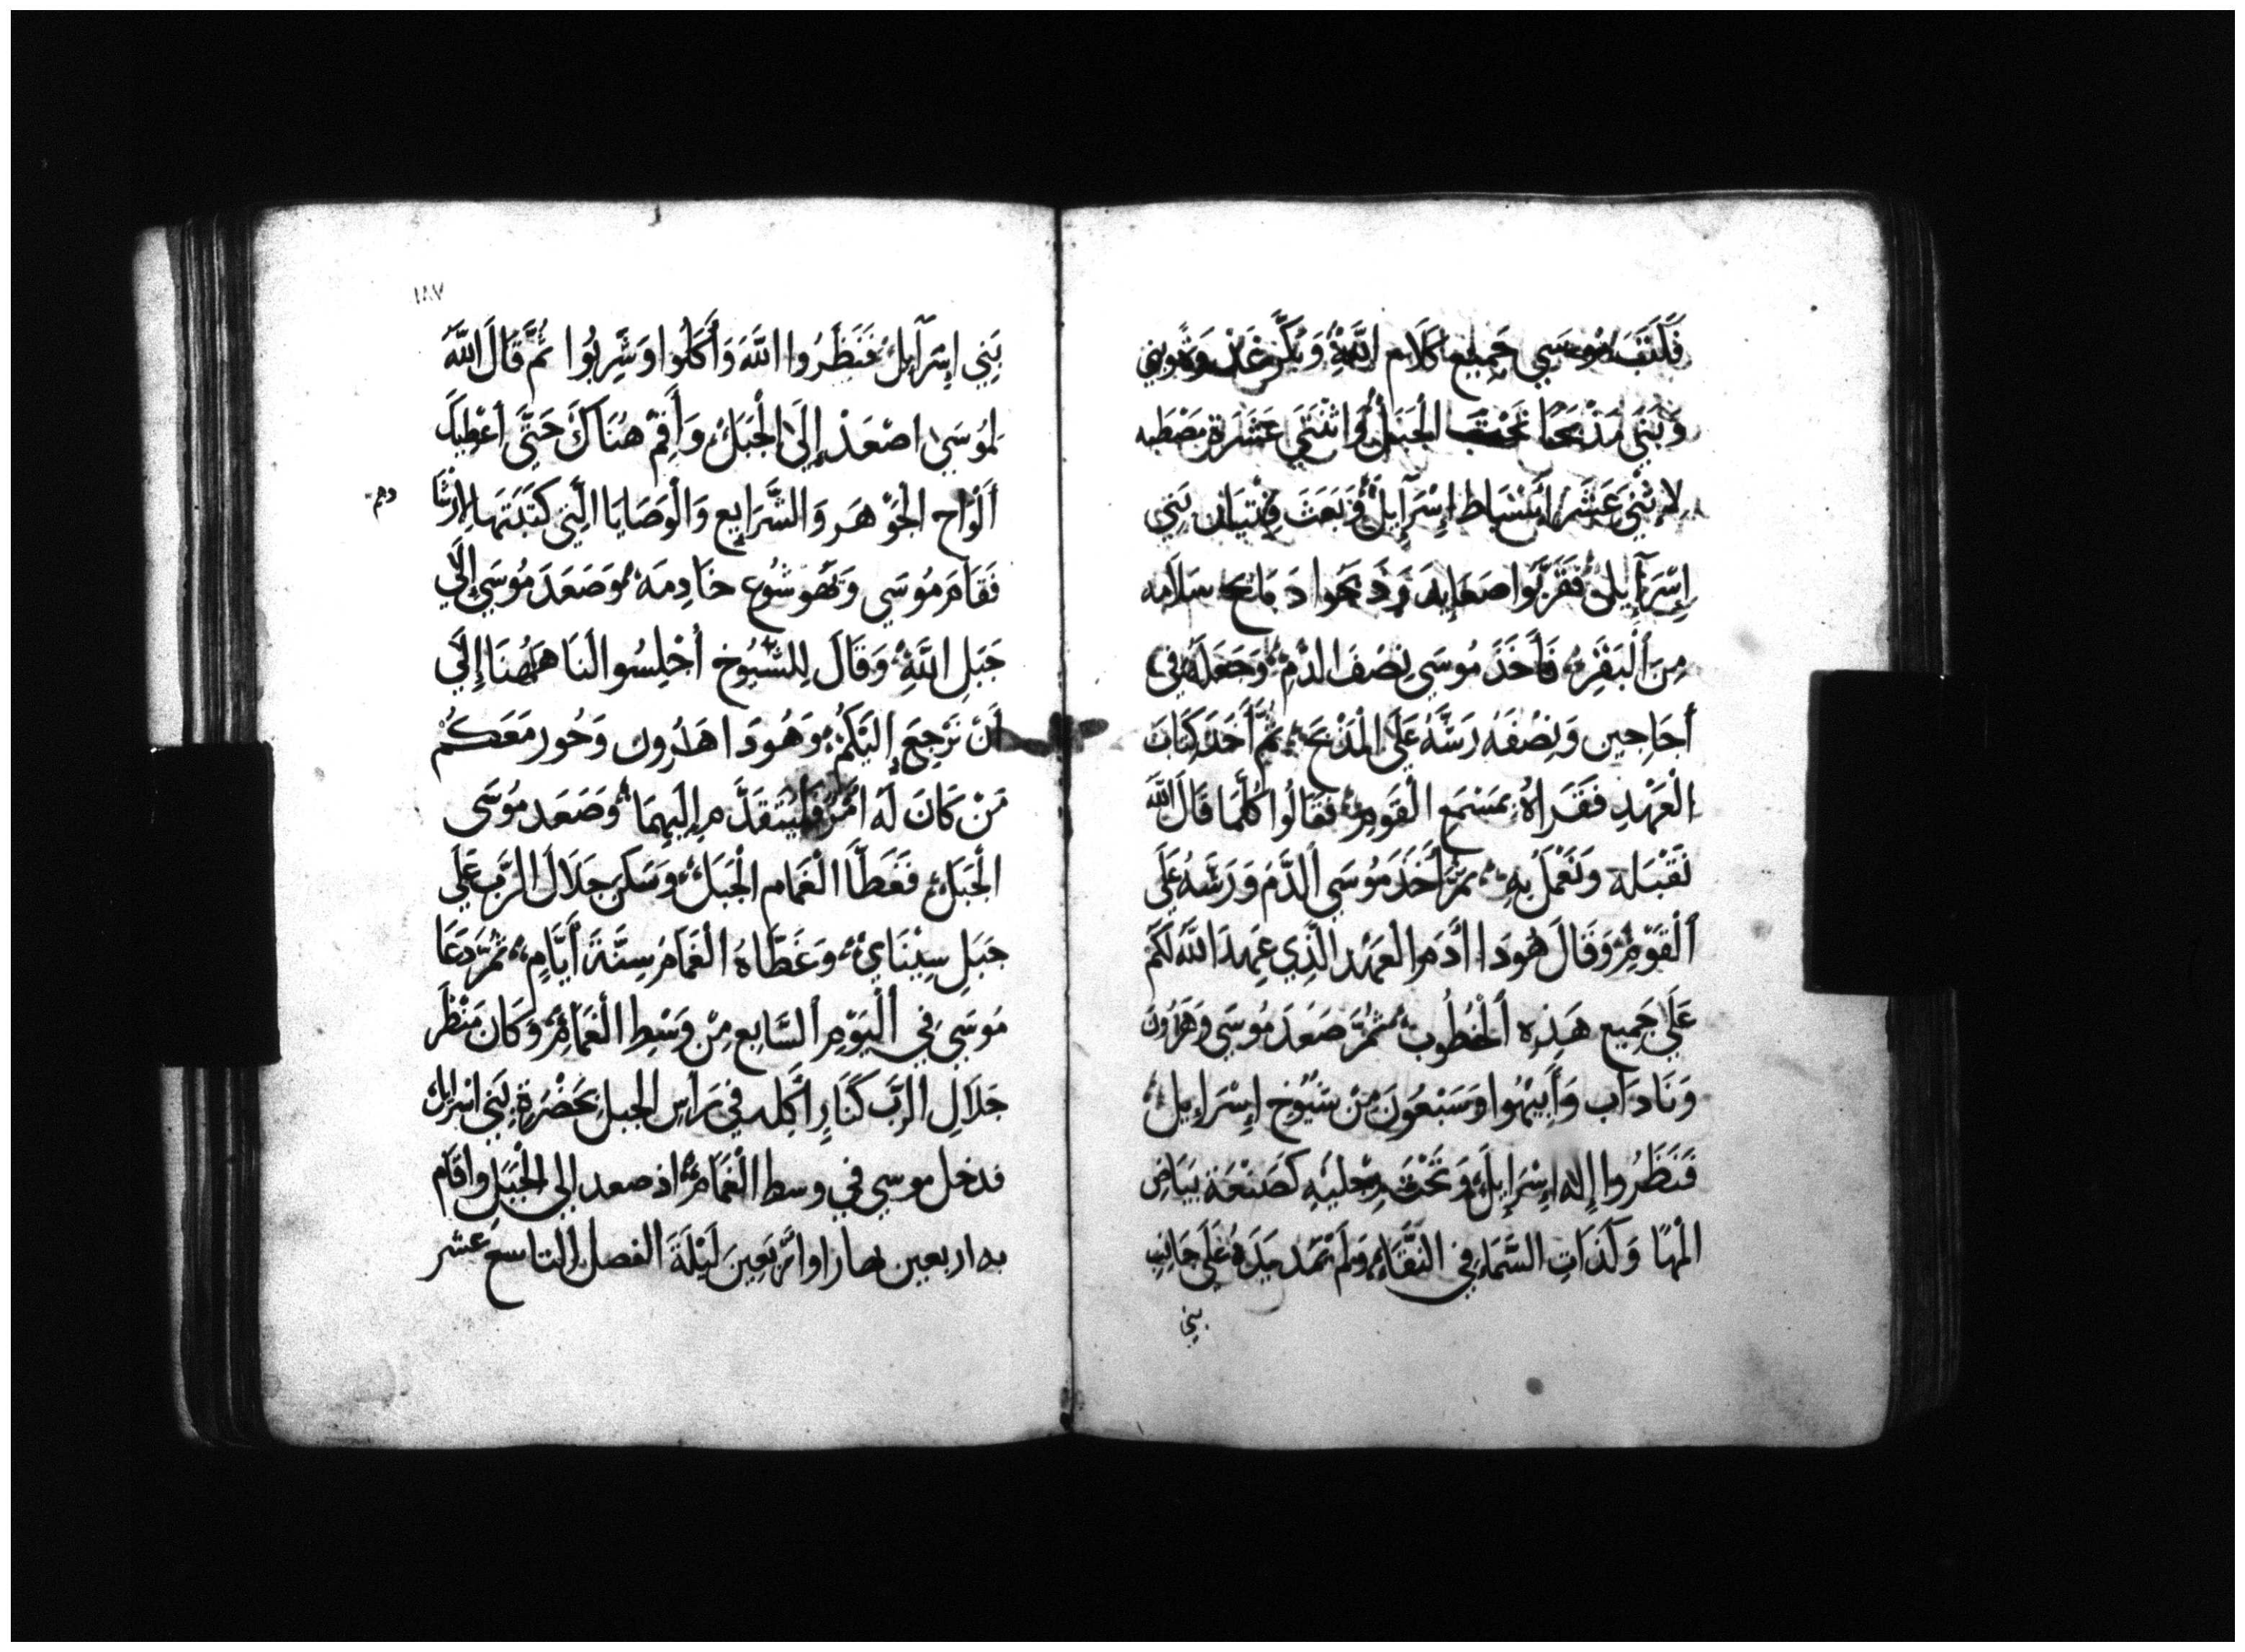 فَكَتَبَ مُوسَي جَمِيعَ كَلَام اللَّهِ وَبَكَّرَ غَدْوَةً وبني
وَبَنَي مَذْبَحًا تَحْتَ الْجَبَلْ وَاثْنَتَي عَشَرَة مَصْطَبه
لاِثْنَي عَشَرَ اسْبَاط اِسْرَآيِلْ وَبَعَثَ فِتْيَان بَنِي
اِسْرَآيِلْ فَقَرَّبُوا صَعَايِدَ وَذَبَحُوا دَبَايح سَلَامه
مِنَ اَلْبَقَرِ فَأَخَذَ مُوسَي نِصْفَ الدَّمْ وَجَعَلَهُ فِي
أَجَاجِين وَنِصْفَهُ رَشَّهُ عَلَي الْمَذْبَحْ ثُمَّ أَخَدَ كِتَابَ
الْعَهْدِ فَقَرَاهُ بِمَسْمَعِ الْقَومِ فَقَالُوا كُلَّمَا قَالَ اللَّه
نَقْبَلهُ وَنَعْمَلُ بِهِ ثمَّ أَخَذَ مُوسَي الدَّمَ وَرَشَّهُ عَلَي
اَلْقَوْمِ وَقَالَ هُودَا اَدَم العَهْد الَّذِي عَهِدَ اللَّهُ لَكُم
عَلَي جَمِيع هَذِهِ اَلْخُطُوب ثُمَّ صَعَدَ مُوسَي وَهَرُونَ
وَنَادَاب وَأَبِيْهُوا وَسَبْعُونَ مِنْ شُيُوخ اِسْرَايِيل
فَنَظَرُوا إِلَه اِسْرَايِيلْ وَتَحْتَ رِجْلَيْهِ كَصَنْعَة بَيَاض
الْمَهَا وَكَذَاتِ السَّمَاءِ فِي النَّقَاءِ وَلَمْ يَمُد يَدَهُ عَلَي جَانِب
بني
١٨٧
بَنِي اِسْرَآيِلْ فَنَظَرُوا اللَّهَ وَأَكَلُوا وَشَرِبُوا ثُمَّ قَالَ اللَّهَ
لمُوسَي اصْعَدْ إِلَي الْجَبَلْ وَأَقِمْ هُنَاكَ حَتَّي أُعْطِيكَ
أَلْوَاح الْجَوْهَر وَالشَّرَايِع وَالْوَصَايَا الَّتِي كَتَبَتَهَا لارْشَا
دهم
فَقَامَ مُوسَي وَيَهُوشُوع خَادِمهُ وَصَعَدَ مُوسَي إِلَي
جَبَلِ اللَّهِ وَقَالَ لِلشُّيُوخ أُجْلِسُوا لنَا هَاهُنَا إِلَي
اَنْ نَرْجِعَ إِلَيْكُمْ وَهُودَا هَارُون وَحُور مَعَكُمْ
مَنْ كَانَ لَهُ امْرٌ فَلْيَتَقَدَّم إِلَيهِمَا وَصَعَدَ مُوسَي
الْجَبَلْ فَغَطَّا الْغَمَام الْجَبَلْ وَسَكن جَلَالَ الرَّبِ عَلَي
جَبَلِ سِيْنَاي وَغَطَّاهُ الْغَمَامُ سِتَّةَ أَيَّامٍ ثمَّ دَعَا
مُوسَي فِي اَلْيَوْمِ السَّابِعِ مِنْ وَسْطِ الْغَمَامِ وَكَانَ مَنْظَر
جَلَالِ الرَّبِ كَنَارٍ اَكله فِي رَأسِ الجبل بِحَضْرَةِ بَنِي اسْرايلْ
فدخل موسي في وسط الْغَمَامِ اذ صعد الي الْجَبَلِ واقام
به اربعين نهارا واَرْبَعِينَ لَيْلَةً الفصل التاسع عشر